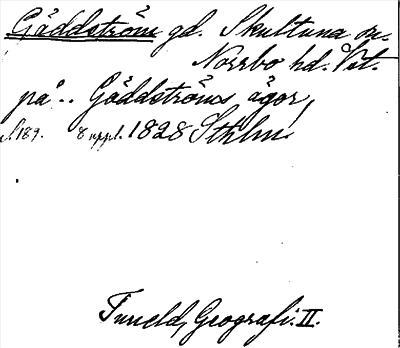 Gäddström gd. Skultuna sn.
Norrbo hd. Vstm.
på.. Gäddströms ägor,
s. 189. 8 uppl. 1828 Sthlm
Tuneld, Geografi. II.